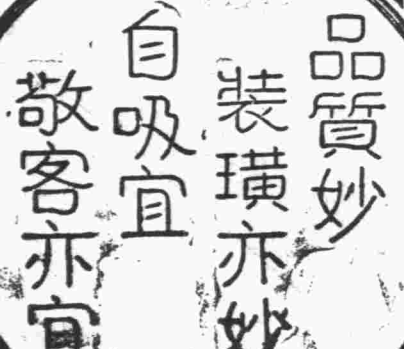 品質妙
裝璜亦妙
自吸宜
敬客亦宜